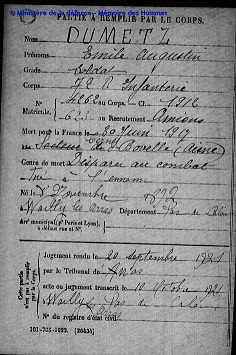 © Ministère de la défense - Mémoire des Hommes
PARTIE À REMPLIR PAR LE CORPS.
Nom DUMETZ
Prénoms Emile Augustin
Grade Soldat
Corps 72 R Infanterie
N° 4262 au Corps. — Cl. 1912
Matricule. 623 au Recrutement Amiens
Mort pour la France le 30 Juin 1917
Secteur de Bovelle (Aisne)
Genre de mort Disparu au combat
Tué à l'ennemi
Né le 8 Novembre
Wailly les Arras Département Pas de Calais
Arr municipal (pr Paris et Lyon),
à défaut rue et N°.
Cette partie
n'est pas à remplir
par le Corps.
Jugement rendu le 20 septembre 1921
par le Tribunal de Arras
acte ou jugement transcrit le 10 Octobre 1921
Wailly les Arras Pas de Calais
N° du registre d'état civil
101-708-1922. [26434]